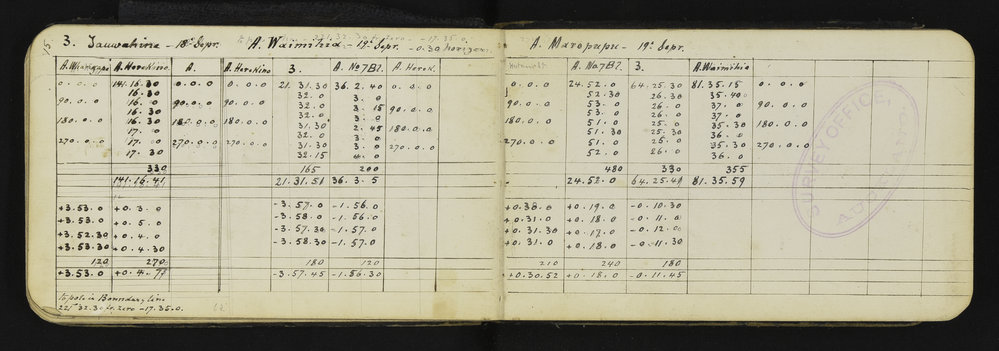 15
3. Tauwahine - 18th Sepr. A. Waimihia - 19th Sepr. - 0.30 horizon.
A. Whangape A. Herekino A. A. Herekino 3. A. No 7B2. A. Herek.
0.0.0 141.16.30 0.0.0 0.0.0 21.31.30 36.2.40 0.0.0
16.30 32.0 3.0
90.0.0 16.0 90.0.0 90.0.0 32.0 3.15 90.0.0
16.30 32.0 3.0
180.0.0 16.30 180.0.0 180.0.0 31.30 2.45 180.0.0
17.0 32.0 3.0
270.0.0 17.0 270.0.0 270.0.0 31.30 3.0 270.0.0
17.30 32.15 4.0
330 165 200
141.16.41 21.31.51 36.3.5
+3.53.0 +0.3.0 -3.57.0 -1.56.0
+3.53.0 +0.5.0 -3.58.0 -1.56.0
+3.52.30 +0.4.0 -3.57.30 -1.57.0
+3.53.30 +0.4.30 -3.58.30 -1.57.0
120 270 180 120
+3.53.0 +0.4.7 -3.57.45 -1.56.30
to pole in Boundary line
225.32.30 fr. zero -17.35.0.
A. Maropupu - 19th Sepr.
A. No 7B2. 3. A. Waimihia
0.0.0 24.52.0 64.25.30 81.35.15 0.0.0
52.30 26.30 35.40
90.0.0 53.0 26.0 37.0 90.0.0
53.0 26.0 37.0
180.0.0 51.0 25.0 35.30 180.0.0
51.30 25.30 36.0
270.0.0 51.0 25.0 35.30 270.0.0
52.0 26.0 36.0
480 330 355
24.52.0 64.25.41 81.35.59
+0.30.0 +0.19.0 -0.10.30
+0.31.0 +0.18.0 -0.11.0
+0.31.30 +0.17.0 -0.12.0
+0.31.0 +0.18.0 -0.11.30
210 240 180
+0.30.52 +0.18.0 -0.11.45
SURVEY OFFICE,
AUCKLAND.